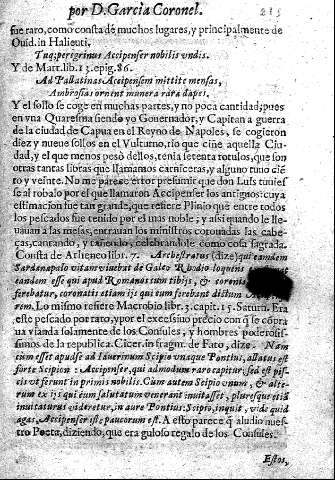 por D. Garcia Coronel. 215
fue raro, como consta de muchos lugares, y principalmente de
Ouid. in Halieuti.
Tuq; peregrinus Accipenser nobilis vndis.
Y de Mart. lib. 13. epig. 86.
Ad Pallatinas Accipensem mittite mensas,
Ambrosias ornent munera rara dapes.
Y el sollo se coge en muchas partes, y no poca cantidad; pues
en vna Quaresma siendo yo Gouernador, y Capitan a guerra
de la ciudad de Capua en el Reyno de Napoles, se cogieron
diez y nueue sollos en el Vulturno, rio que ciñe aquella Ciu-
dad, y el que menos pesò dellos, tenia setenta rotulos, que son
otras tantas libras que llamamos carniceras, y alguno tuuo cie-
to y veinte. No me parece error presumir que don Luis tuuies
se al robalo por el que llamaron Accipenser los antiguos: cuya
estimacion fue tan grande, que refiere Plinio que entre todos
los pescados fue tenido por el mas noble; y assi quando le lle-
uauan a las mesas, entrauan los ministros coronadas las cabe-
ças, cantando, y tañendo, celebrandole como cosa sagrada.
Consta de Atheneo lib. 7. Archestratus (dize) qui eandem
Sardanapalo vitam viuebat de Galeo Rhodio loquens
eandem esse qui apud Romanos tum tibijs, &
ferebatur, coronatis etiam ijs qui tum ferebant dictum
rem. Lo mismo refiere Macrobio lib. 3. capit. 15. Saturn. Era
este pescado tan raro, y por el excessiuo precio con q̃ se copra
ua vianda solamente de los Consules, y hombres poderosis-
simos de la republica. Cicer. in fragm. de Fato, dize. Nam
cum esset apud se ad lauerinum Scipio vnaque Pontius, allatus est
forte Scipion: Accipenser, qui admodum raro capitur, sed est pis-
cis vt ferunt in primis nobilis. Cum autem Scipio vnum, & alte-
rum ex ijs qui eum salutatum venerant inuitasset, pluresque etiã
inuitaturus videretur, in aure Pontius: Scipio, inquit, vide quid
agas, Accipenser iste paucorum est. A esto parece q̃ aludio nues-
tro Poeta, diziendo, que era guloso regalo de los Consules.
Estos,